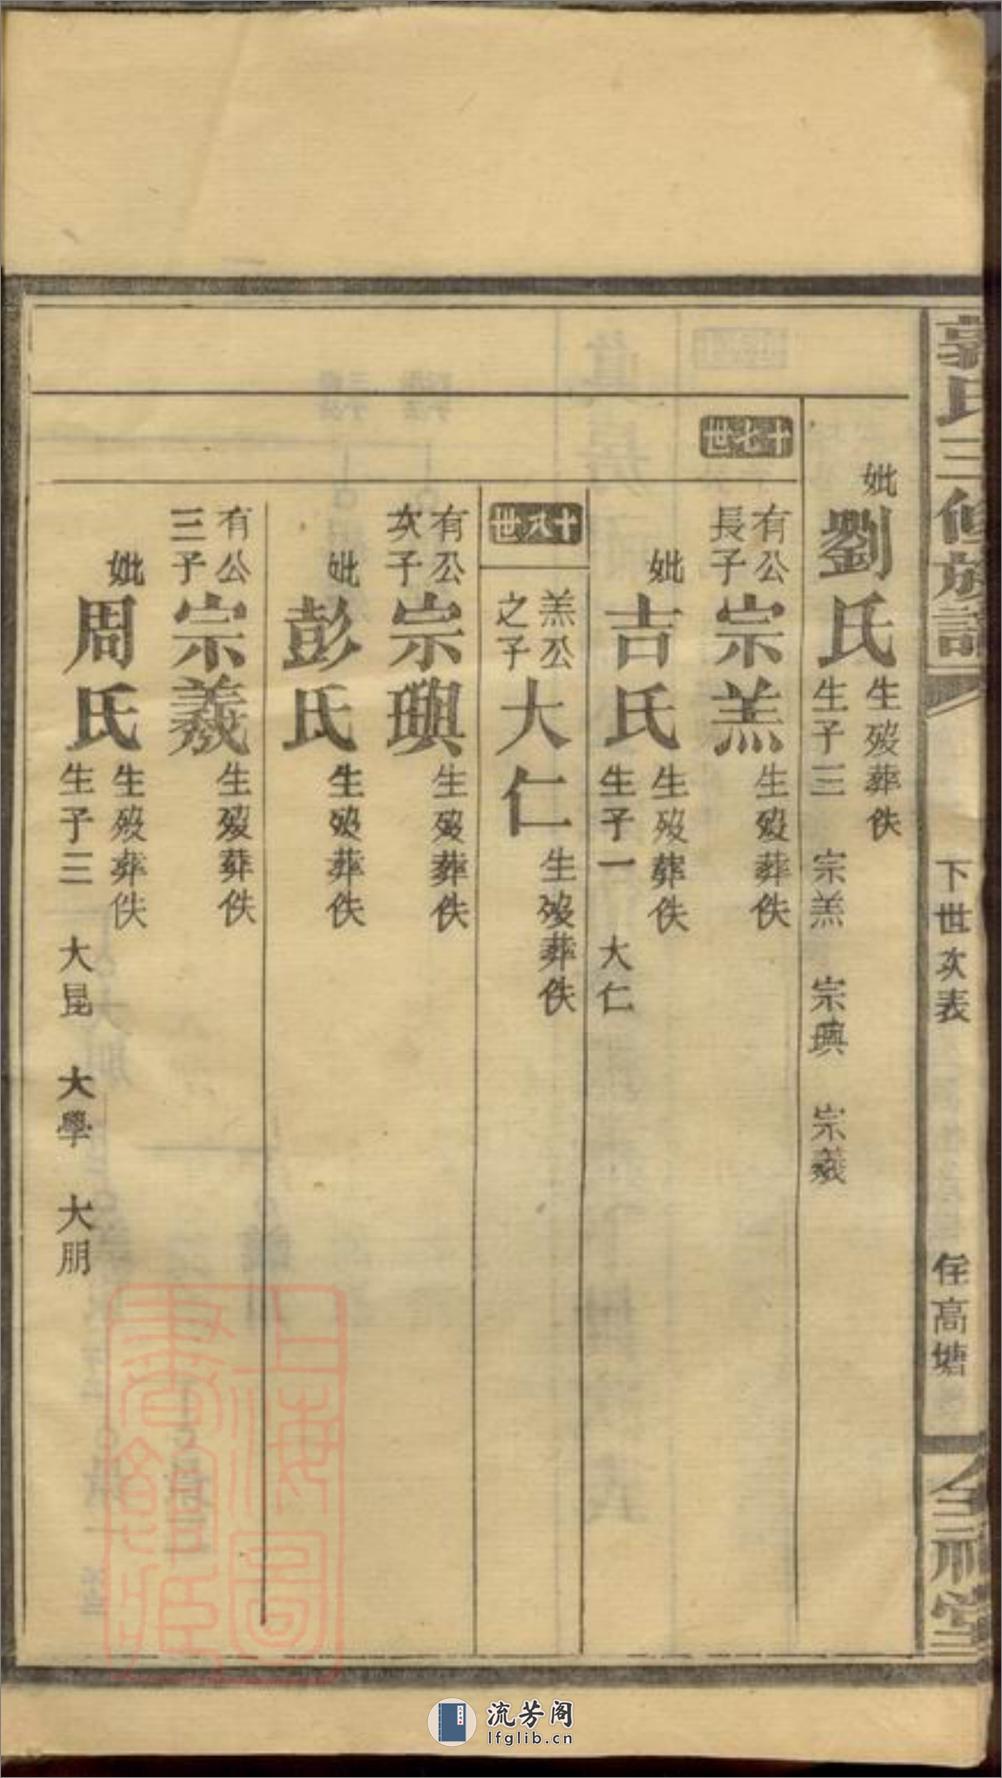 郭氏三修族譜
下世次表
住高塘
妣劉氏生歿葬佚
生子三 宗羔 宗璵 宗羲
十七世
有公長子宗羔生歿葬佚
妣吉氏生歿葬佚
生子一 大仁
十八世
羔公之子大仁生歿葬佚
有公次子宗璵生歿葬佚
妣彭氏生歿葬佚
有公三子宗羲生歿葬佚
妣周氏生歿葬佚
生子三 大昆 大學 大朋
上海圖書館藏
流芳阁
lfglib.cn